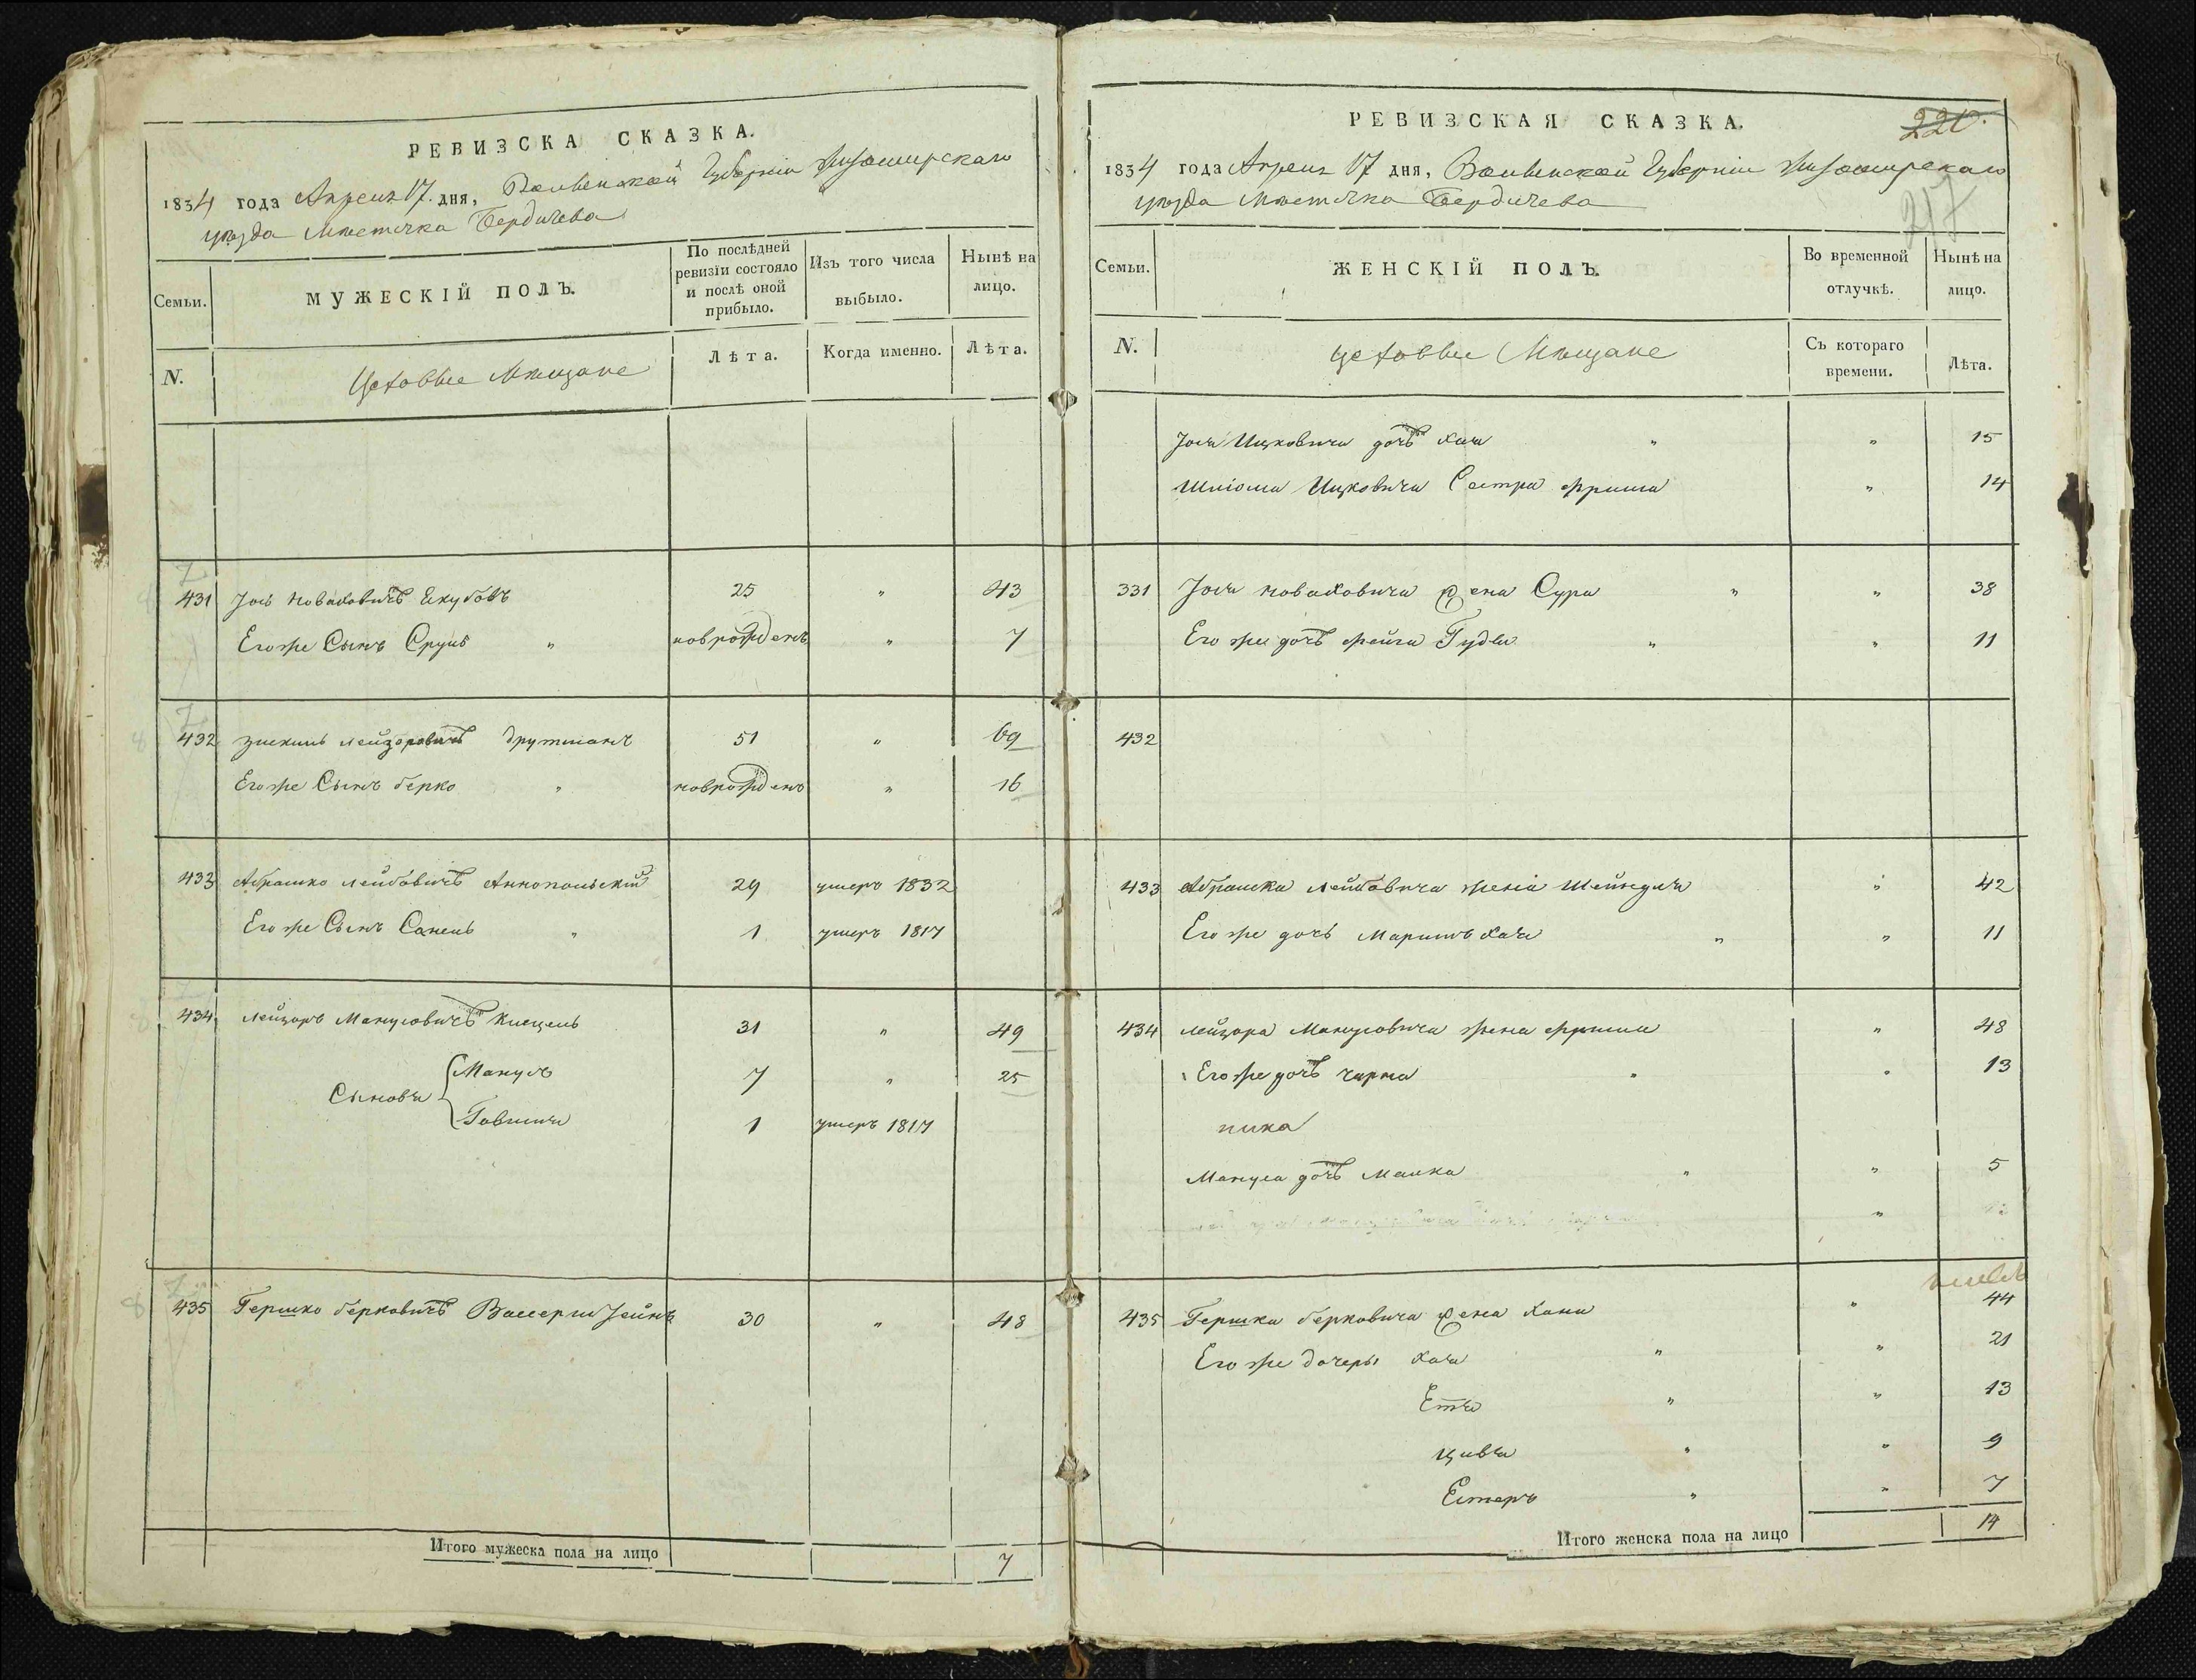 РЕВИЗСКА СКАЗКА.
1834 года Апреля 17. дня, Волынской Губернии Житомирскаго
уѣзда Мѣстечка Бердичева
Семьи.
МУЖЕСКІЙ ПОЛЪ.
По послѣдней ревизіи состояло и послѣ оной прибыло.
Изъ того числа выбыло.
Нынѣ на лицо.
N.
Цеховые Мѣщане
Лѣта.
Когда именно.
Лѣта.
431 Іось Якубовъ 25 " 43
Его же Сынъ Сруль " новрожденъ " 7
432 Зискинь Лейзоровичъ Друтманъ 51 " 69
Его же Сынъ Берко " новрожденъ " 16
433 Абрашко Лейбовичъ Аннопольскій 29 умеръ 1832
Его же Сынъ Санель " 1 умеръ 1817
434 Лейзоръ Манусовичъ 31 " 49
Сыновя
Манусъ 7 " 25
Гавшия 1 умеръ 1817
435 Гершко Берковичъ Вассерштейнъ 30 " 48
Итого мужеска пола на лицо 7
РЕВИЗСКАЯ СКАЗКА.
220.
1834 года Апреля 17 дня, Волынской Губернии Житомирскаго
уѣзда Мѣстечка Бердичева
217
Семьи.
ЖЕНСКІЙ ПОЛЪ.
Во временной отлучкѣ.
Нынѣ на лицо.
N.
Цеховые Мѣщане
Съ котораго времени.
Лѣта.
Іося Ицковича дочь Хая " " 15
Шліома Ицковича Сестра Фрима " 14
331 Іося жена Сура " " 38
Его же дочь Фейга Гудля " " 11
432
433 Абрашка Лейбовича жена Шейндля " 42
Его же дочь Маримъ Хая " " 11
434 Лейзора Манусовича жена Фрима " 48
Его же дочь Чарна " " 13
пика
Мануса дочь Малка " " 5
"
435 Гершка Берковича жена Хана " 44
Его же дочеры Хая " " 21
Етя " " 13
Цивя " " 9
Естеръ " " 7
Итого женска пола на лицо 14